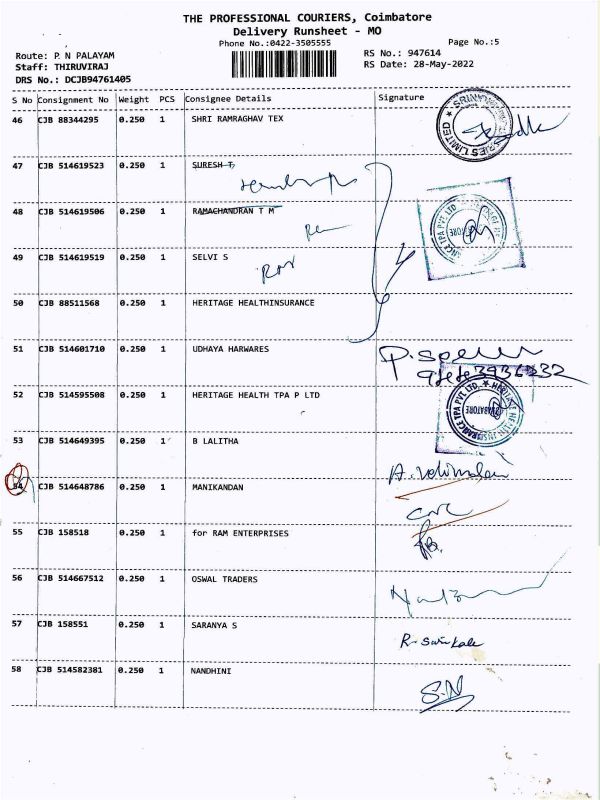 THE PROFESSIONAL COURIERS, Coimbatore
Delivery Runsheet - MO
Phone No.:0422-3505555
Page No.:5
Route: P. N PALAYAM
RS No.: 947614
Staff: THIRUVIRAJ
RS Date: 28-May-2022
DRS No.: DCJB94761405
S No Consignment No Weight PCS Consignee Details Signature
46 CJB 88344295 0.250 1 SHRI RAMRAGHAV TEX
47 CJB 514619523 0.250 1 SURESH T
48 CJB 514619506 0.250 1 RAMACHANDRAN T M
49 CJB 514619519 0.250 1 SELVI S
50 CJB 88511568 0.250 1 HERITAGE HEALTHINSURANCE
51 CJB 514601710 0.250 1 UDHAYA HARWARES
52 CJB 514595508 0.250 1 HERITAGE HEALTH TPA P LTD
53 CJB 514649395 0.250 1 B LALITHA
54 CJB 514648786 0.250 1 MANIKANDAN
55 CJB 158518 0.250 1 for RAM ENTERPRISES
56 CJB 514667512 0.250 1 OSWAL TRADERS
57 CJB 158551 0.250 1 SARANYA S
58 CJB 514582381 0.250 1 NANDHINI
S.N